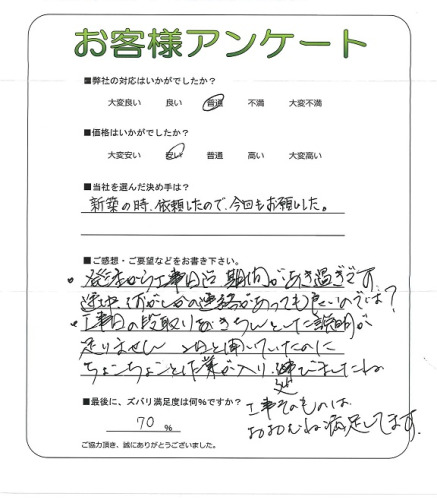 お客様アンケート
■弊社の対応はいかがでしたか？
大変良い 良い 普通 不満 大変不満
■価格はいかがでしたか？
大変安い 安い 普通 高い 大変高い
■当社を選んだ決め手は？
新築の時、依頼したので、今回もお願いした。
■ご感想・ご要望などをお書き下さい。
から工事日迄期間があき過ぎです
途中、何がしかの連絡があっても良いのでは？
工事日の段取りがきちんとした説明が
足りません 2日と聞いていたのに
ちょこちょことした作業が入り、延びましたね
■最後に、ズバリ満足度は何%ですか？
工事そのものは
70 %
おおむね満足してます。
ご協力頂き、誠にありがとうございました。